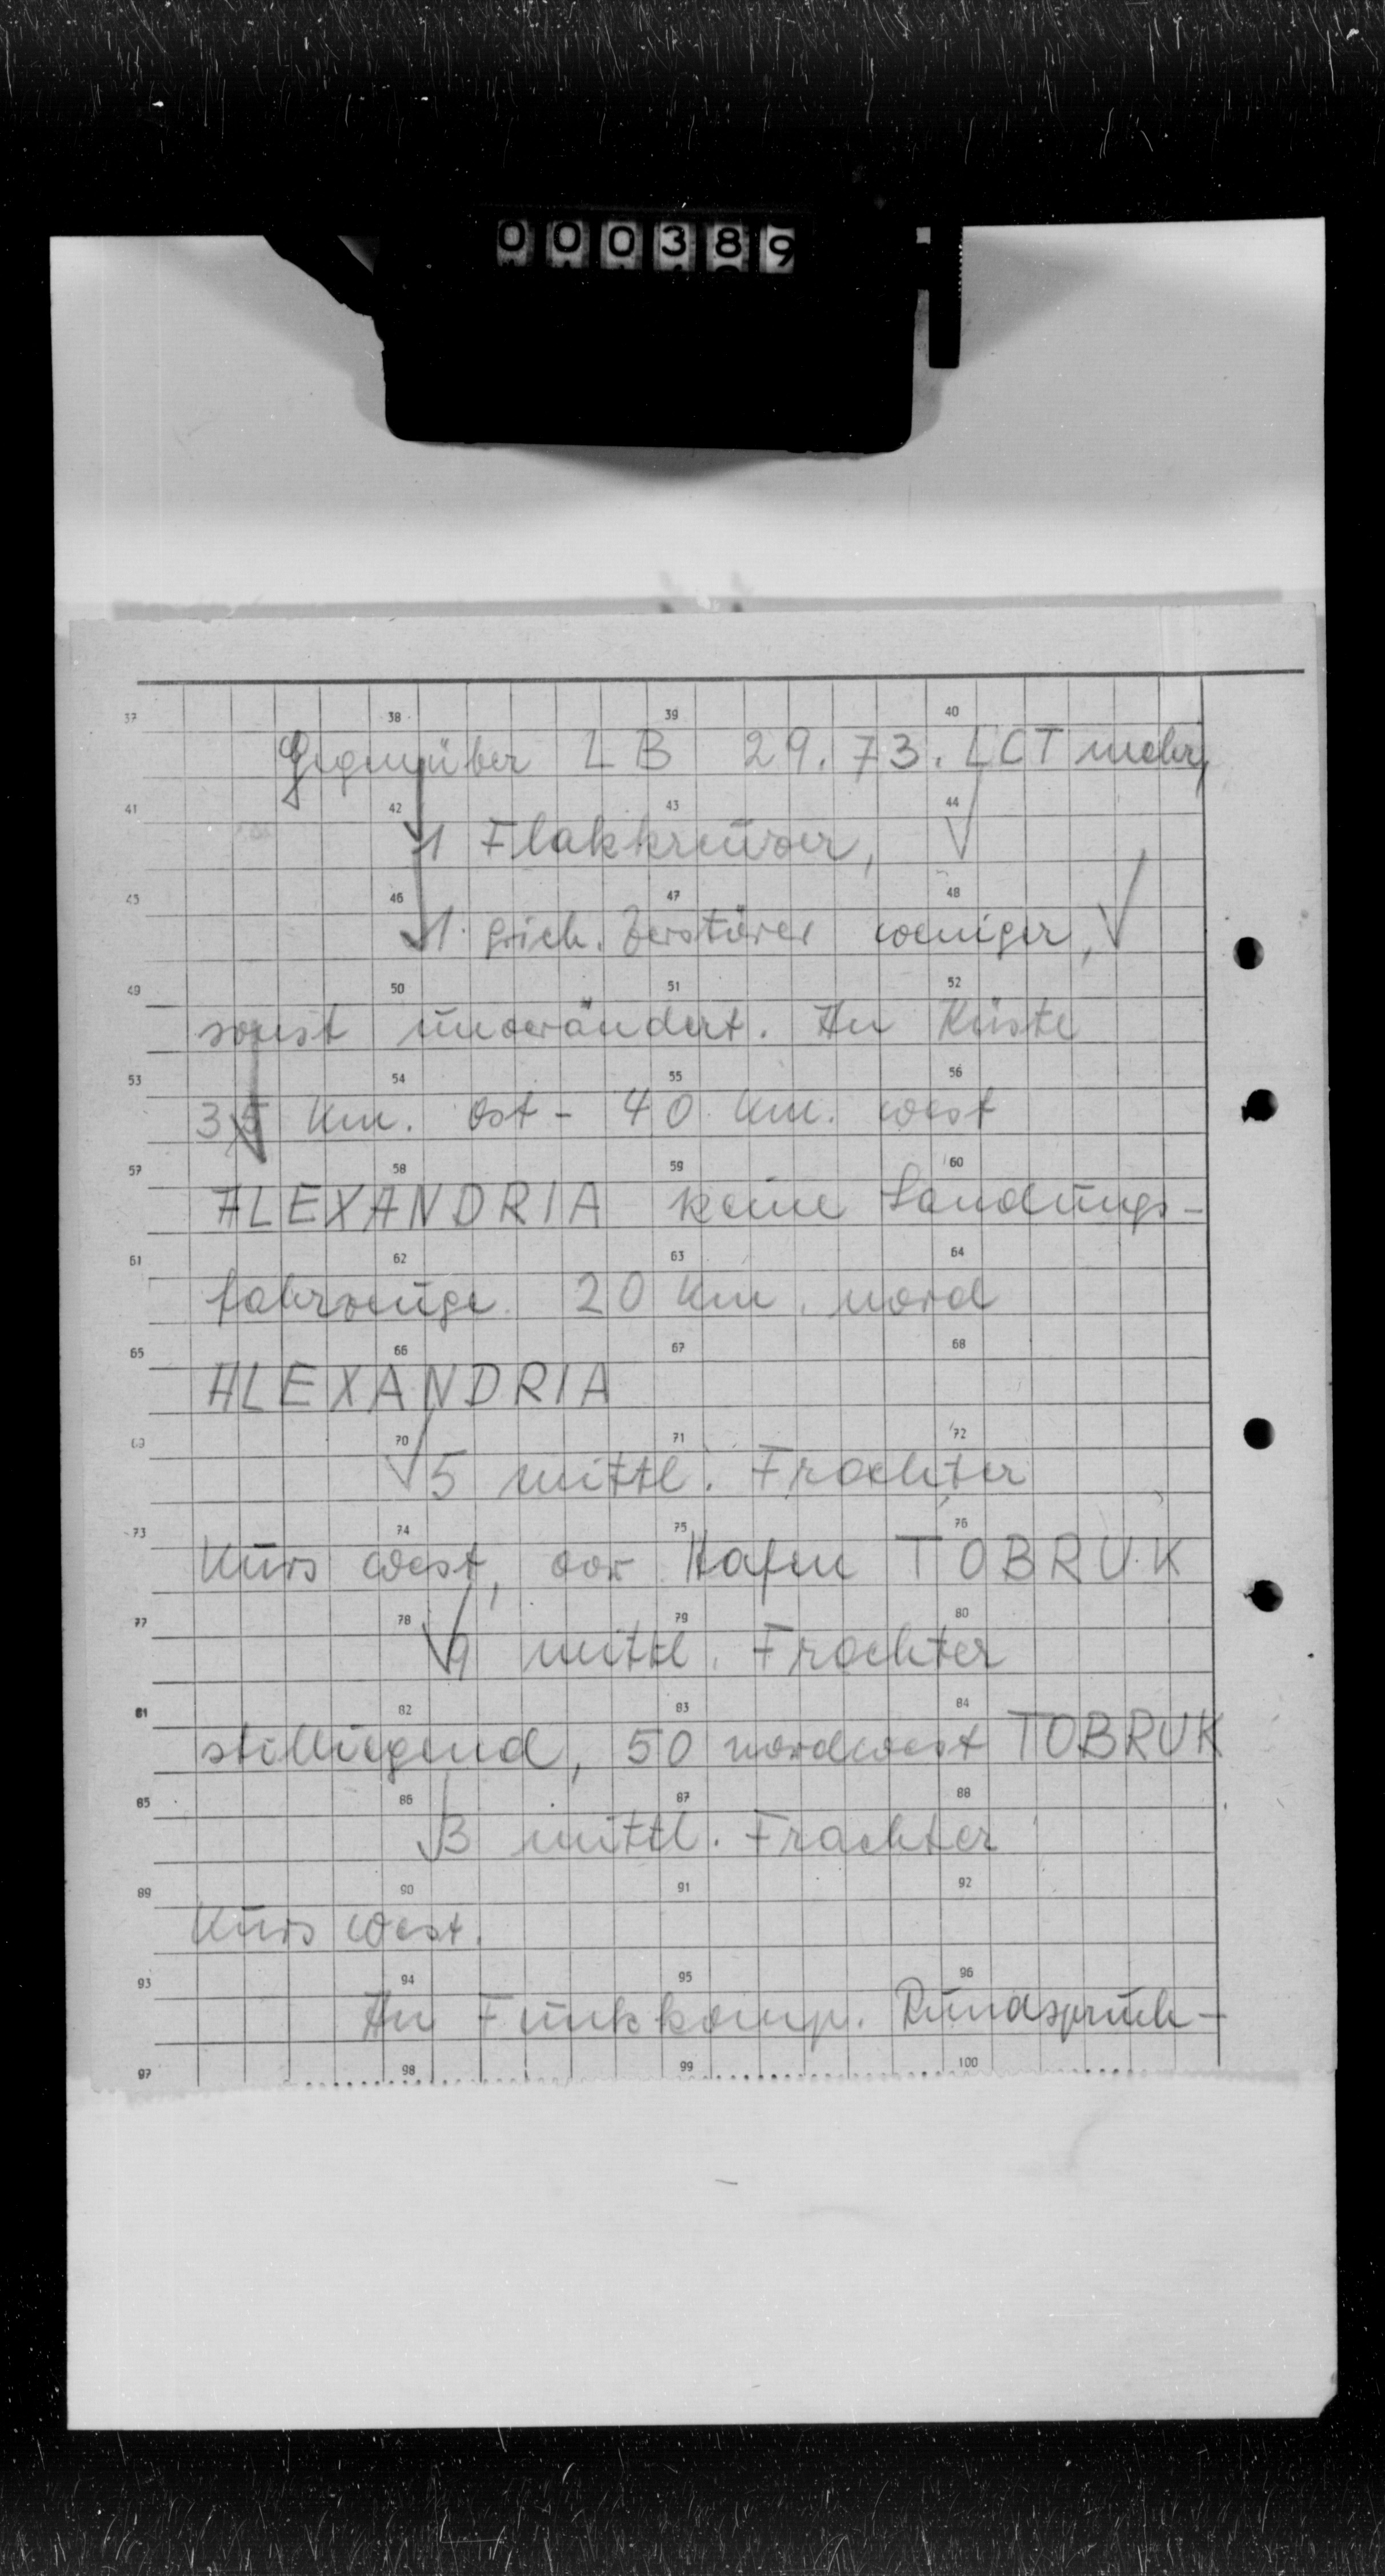 000389
37 38 39 40
Gegenüber LB 29.73. LCT mehr,
41 42 43 44
1 Flakkreuzer,
45 46 47 48
1 griech. Zerstörer weniger,
49 50 51 52
sonst unverändert. An Küste
53 54 55 56
35 km. ost - 40 km. west
57 58 59 60
ALEXANDRIA keine Landungs-
61 62 63 64
fahrzeuge. 20 km. nord
65 66 67 68
ALEXANDRIA
69 70 71 72
5 mittl. Frachter
73 74 75 76
Kurs west, vor Hafen TOBRUK
77 78 79 80
1 mittl. Frachter
81 82 83 84
stilliegend, 50 nordwest TOBRUK
85 86 87 88
3 mittl. Frachter
89 90 91 92
Kurs west.
93 94 95 96
An Funkkomp. Rundspruch-
97 98 99 100